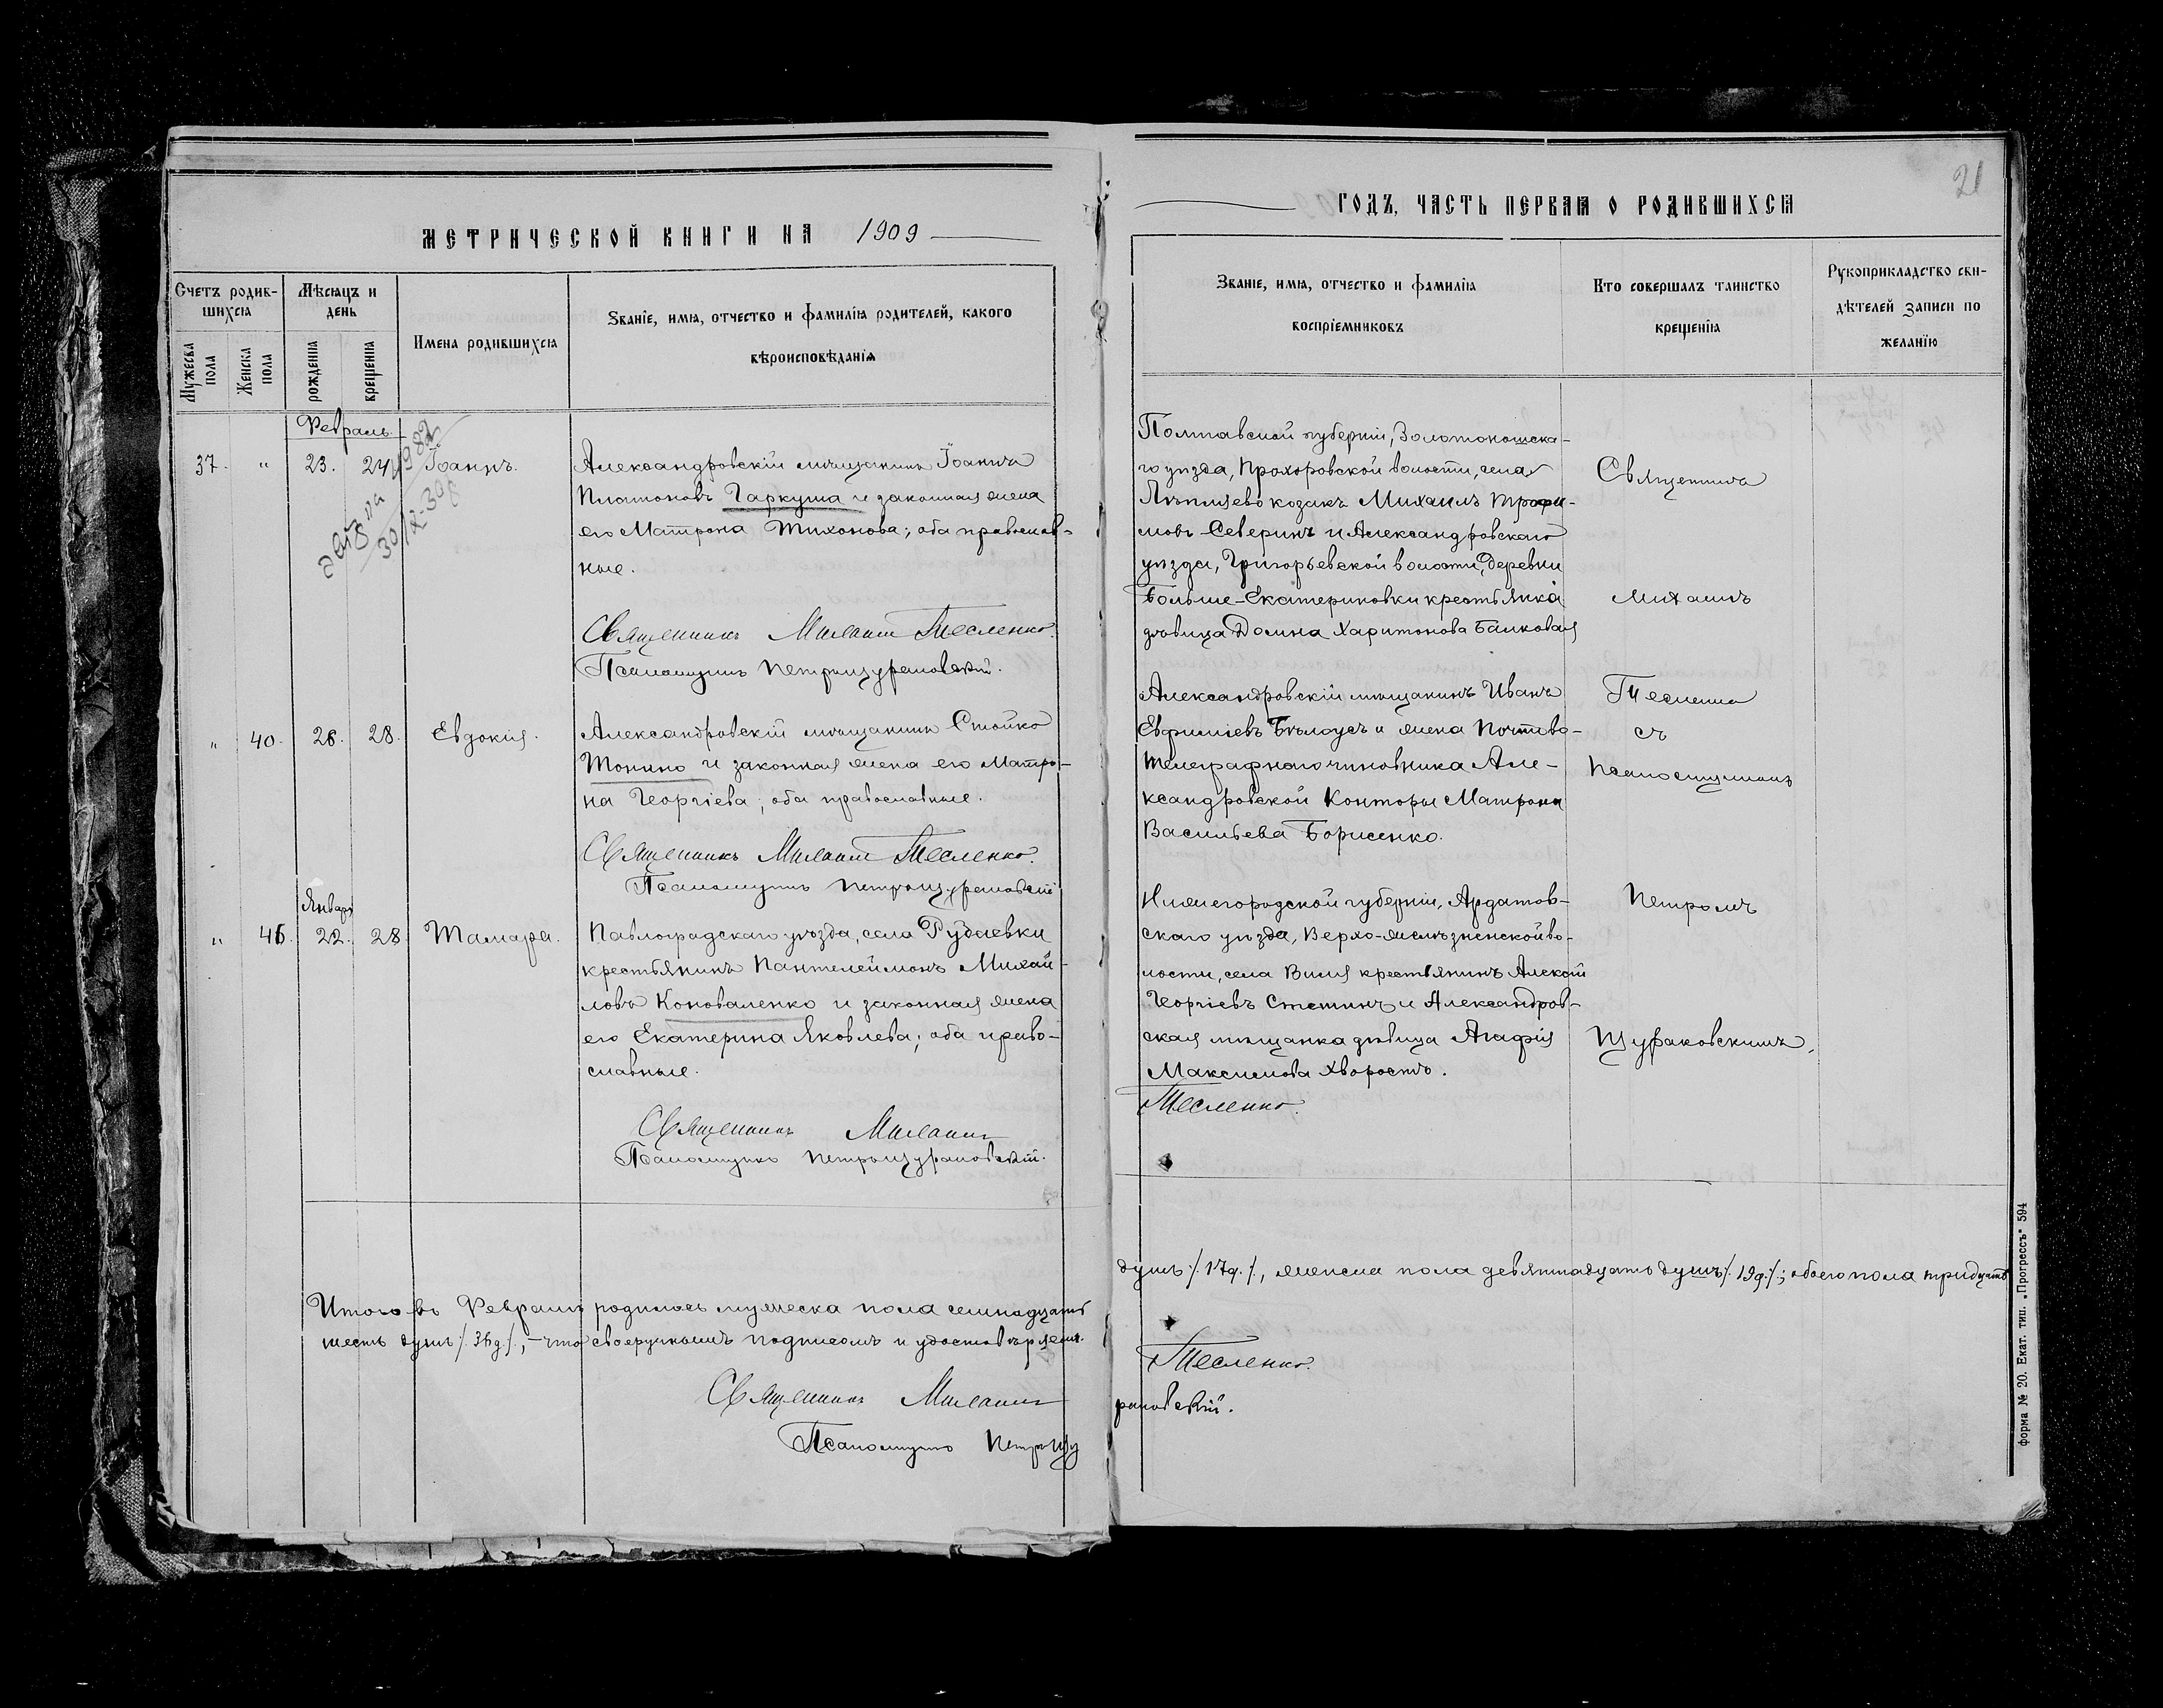 21
МЕТРИЧЕСКОЙ КНИГИ НА 1909
ГОДЪ, ЧАСТЬ ПЕРВАЯ О РОДИВШИХСЯ
Счетъ родив-
шихся
Мужеска
пола
Женска
пола
Мѣсяцъ и
день
рожденія
крещенія
Имена родившихся
Званіе, имя, отчество и фамилія родителей, какого
вѣроисповѣданія
Званіе, имя, отчество и фамилія
воспріемниковъ
Кто совершалъ таинство
крещенія
Рукоприкладство сви-
дѣтелей записи по
желанію
Февраль
37. " 23. 24 Іоаннъ.
Александровскій мѣщанинъ Іоаннъ
Платоновъ Гаркуша и законная жена
его Матрона Тихонова; оба православ-
ные.
Священникъ Михаилъ Тесленко.
Псаломщикъ Петръ Цураковскій.
" 40. 26. 28. Евдокія.
Александровскій мѣщанинъ Стойко
Тонино и законная жена его Матро-
на Георгіева; оба православные.
Священникъ Михаилъ Тесленко.
Псаломщикъ Петръ Цураковскій
Январь
" 22. 28. Тамара.
Павлоградскаго уѣзда, села
крестьянинъ Пантелеймонъ Михай-
ловъ Коноваленко и законная жена
его Екатерина Яковлева; оба право-
славные.
Священникъ Михаилъ
Псаломщикъ Петръ Цураковскій.
Итого въ Февралѣ родилось мужеска пола семнадцать
шесть душъ /.36д./, – что своеручнымъ подписомъ и удостовѣряемъ.
Священникъ Михаилъ
Псаломщикъ Петръ Цу
Полтавской губерніи, Золотоношска-
го уѣзда, Прохоровской волости, села
козакъ Михаилъ Трофи-
мовъ Северинъ и Александровскаго
уѣзда, Григорьевской волости, деревни
Больше-Екатериновки крестьянка
дѣвица Домна Харитонова Балковая
Александровскій мѣщанинъ Иванъ
Евфиміевъ Бѣлоусъ и жена Почтово-
Телеграфнаго чиновника Але-
ксандровской Конторы Матрона
Васильева Борисенко.
Нижегородской губерніи, Ардатов-
скаго уѣзда, Верхо-желѣзненской во-
лости, села Виля крестьянинъ Алексій
Георгіевъ и Александров-
ская мѣщанка дѣвица Агафія
Максимова Хворостъ.
Тесленко.
Священникъ
Михаилъ
Тесленко
съ
Псаломщикомъ
Петромъ
Цураковскимъ.
душъ /.17д./, женска пола девятнадцать душъ /.19д./; обоего пола тридцать
Тесленко.
раковскій.
форма № 20. Екат. тип. „Прогрессъ" 594